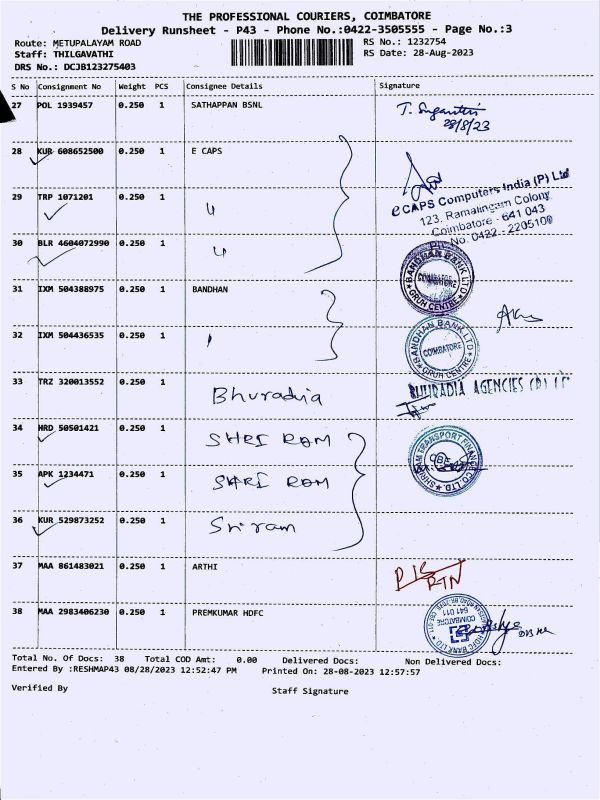 THE PROFESSIONAL COURIERS, COIMBATORE
Delivery Runsheet - P43 - Phone No.:0422-3505555 - Page No.:3
Route: METUPALAYAM ROAD RS No.: 1232754
Staff: THILGAVATHI RS Date: 28-Aug-2023
DRS No.: DCJB123275403
S No Consignment No Weight PCS Consignee Details Signature
27 POL 1939457 0.250 1 SATHAPPAN BSNL
28/8/23
28 KUR 608652500 0.250 1 E CAPS
eCAPS Computers India (P) Ltd
29 TRP 1071201 0.250 1 "
123, Ramalingam Colony
Coimbatore - 641 043
30 BLR 4604072990 0.250 1 "
No: 0422 - 2205100
BANDHAN BANK LTD
COIMBATORE
GRUH CENTRE
31 IXM 504388975 0.250 1 BANDHAN
32 IXM 504436535 0.250 1 "
BANDHAN BANK LTD
COIMBATORE
GRUH CENTRE
33 TRZ 320013552 0.250 1 Bhuradia
BHURADIA AGENCIES (P) LT
34 HRD 50501421 0.250 1 SHRI RAM
SHRIRAM TRANSPORT FINANCE CO LTD.
CBE
35 APK 1234471 0.250 1 SHRI RAM
36 KUR 529873252 0.250 1 Sriram
37 MAA 861483021 0.250 1 ARTHI
RTN
38 MAA 2983406230 0.250 1 PREMKUMAR HDFC
HDFC BANK LTD
COIMBATORE
641 011
Total No. Of Docs: 38 Total COD Amt: 0.00 Delivered Docs: Non Delivered Docs:
Entered By :RESHMAP43 08/28/2023 12:52:47 PM Printed On: 28-08-2023 12:57:57
Verified By Staff Signature